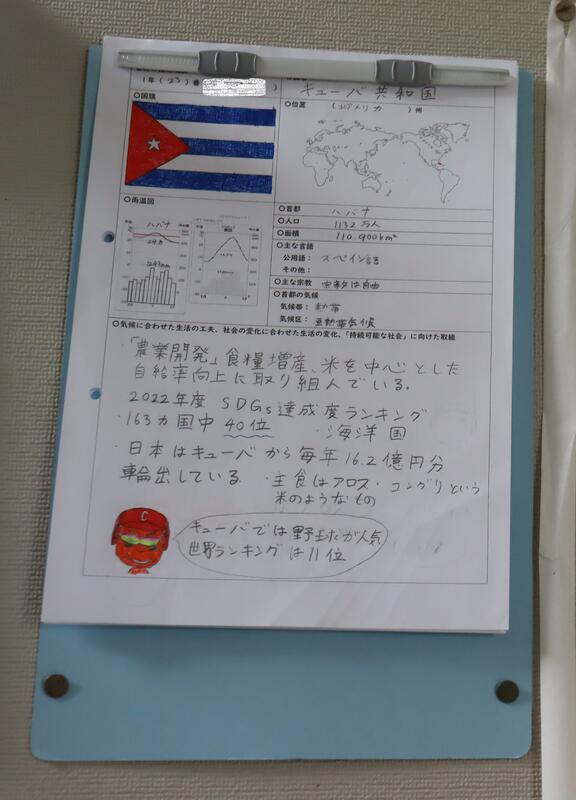 1年(23)番
キューバ共和国
○国旗
○位置
(北アメリカ)州
○雨温図
ハバナ
○首都 ハバナ
○人口 1132万人
○面積 110,900km²
○主な言語
公用語: スペイン語
その他:
○主な宗教 宗教は自由
○首都の気候
気候帯: 熱帯
気候区: 亜熱帯気候
○気候に合わせた生活の工夫、社会の変化に合わせた生活の変化、「持続可能な社会」に向けた取組
・「農業開発」食糧増産、米を中心とした
自給率向上に取り組んでいる。
2022年度 SDGs達成度ランキング
・163カ国中 40位 ・海洋国
・日本はキューバから毎年16.2億円分
輸出している ・主食はアロス・コングリという
米のようなもの
C
キューバでは野球が人気
世界ランキングは11位